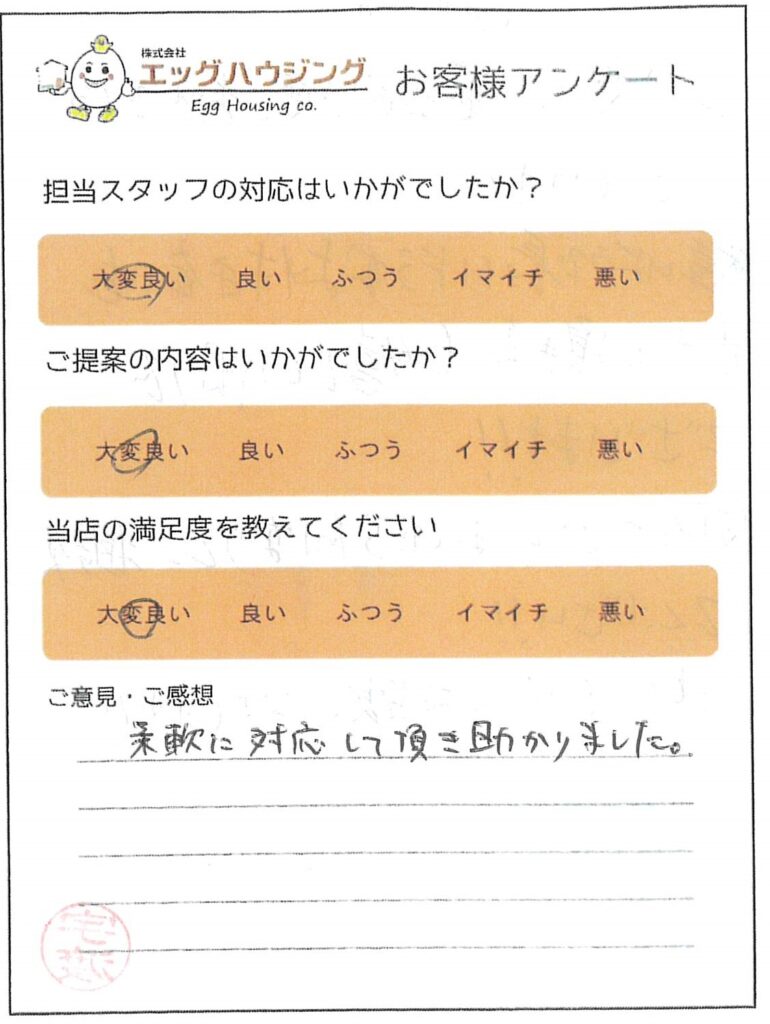 株式会社
エッグハウジング
Egg Housing co.
お客様アンケート
担当スタッフの対応はいかがでしたか？
大変良い 良い ふつう イマイチ 悪い
ご提案の内容はいかがでしたか？
大変良い 良い ふつう イマイチ 悪い
当店の満足度を教えてください
大変良い 良い ふつう イマイチ 悪い
ご意見・ご感想
柔軟に対応して頂き助かりました。